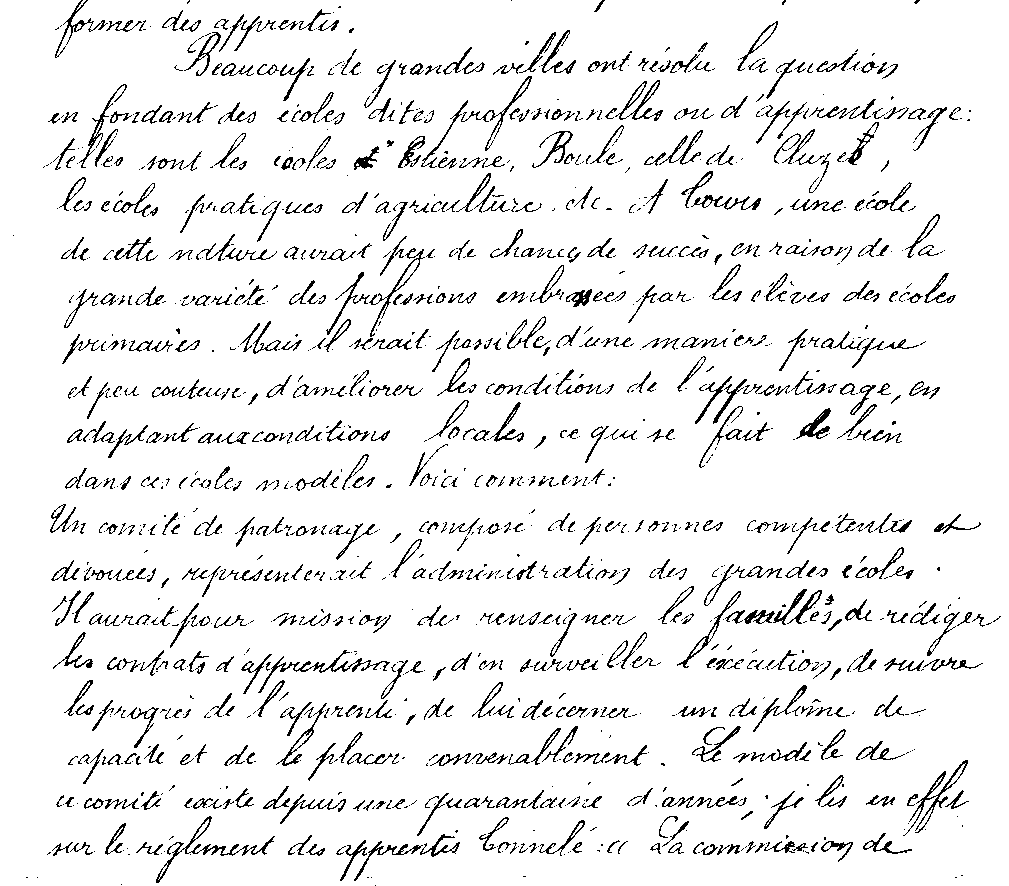 former des apprentis.
Beaucoup de grandes villes ont résolu la question
en fondant des écoles dites professionnelles ou d'apprentissage:
telles sont les écoles Estienne, Boule, celle de Cluzet,
les écoles pratiques d'agriculture etc. A Cours, une école
de cette nature aurait peu de chances de succès, en raison de la
grande variété des professions embrassées par les élèves des écoles
primaires. Mais il serait possible, d'une manière pratique
et peu couteuse, d'améliorer les conditions de l'apprentissage, en
adaptant aux conditions locales, ce qui se fait de bien
dans ces écoles modèles. Voici comment:
Un comité de patronage, composé de personnes compétentes et
dévouées, représenterait l'administration des grandes écoles.
Il aurait pour mission de renseigner les familles, de rédiger
les contrats d'apprentissage, d'en surveiller l'éxécution, de suivre
les progrès de l'apprenti, de lui décerner un diplôme de
capacité et de le placer convenablement. Le modèle de
ce comité existe depuis une quarantaine d'années; je lis en effet
sur le réglement des apprentis Connelé: « La commission de